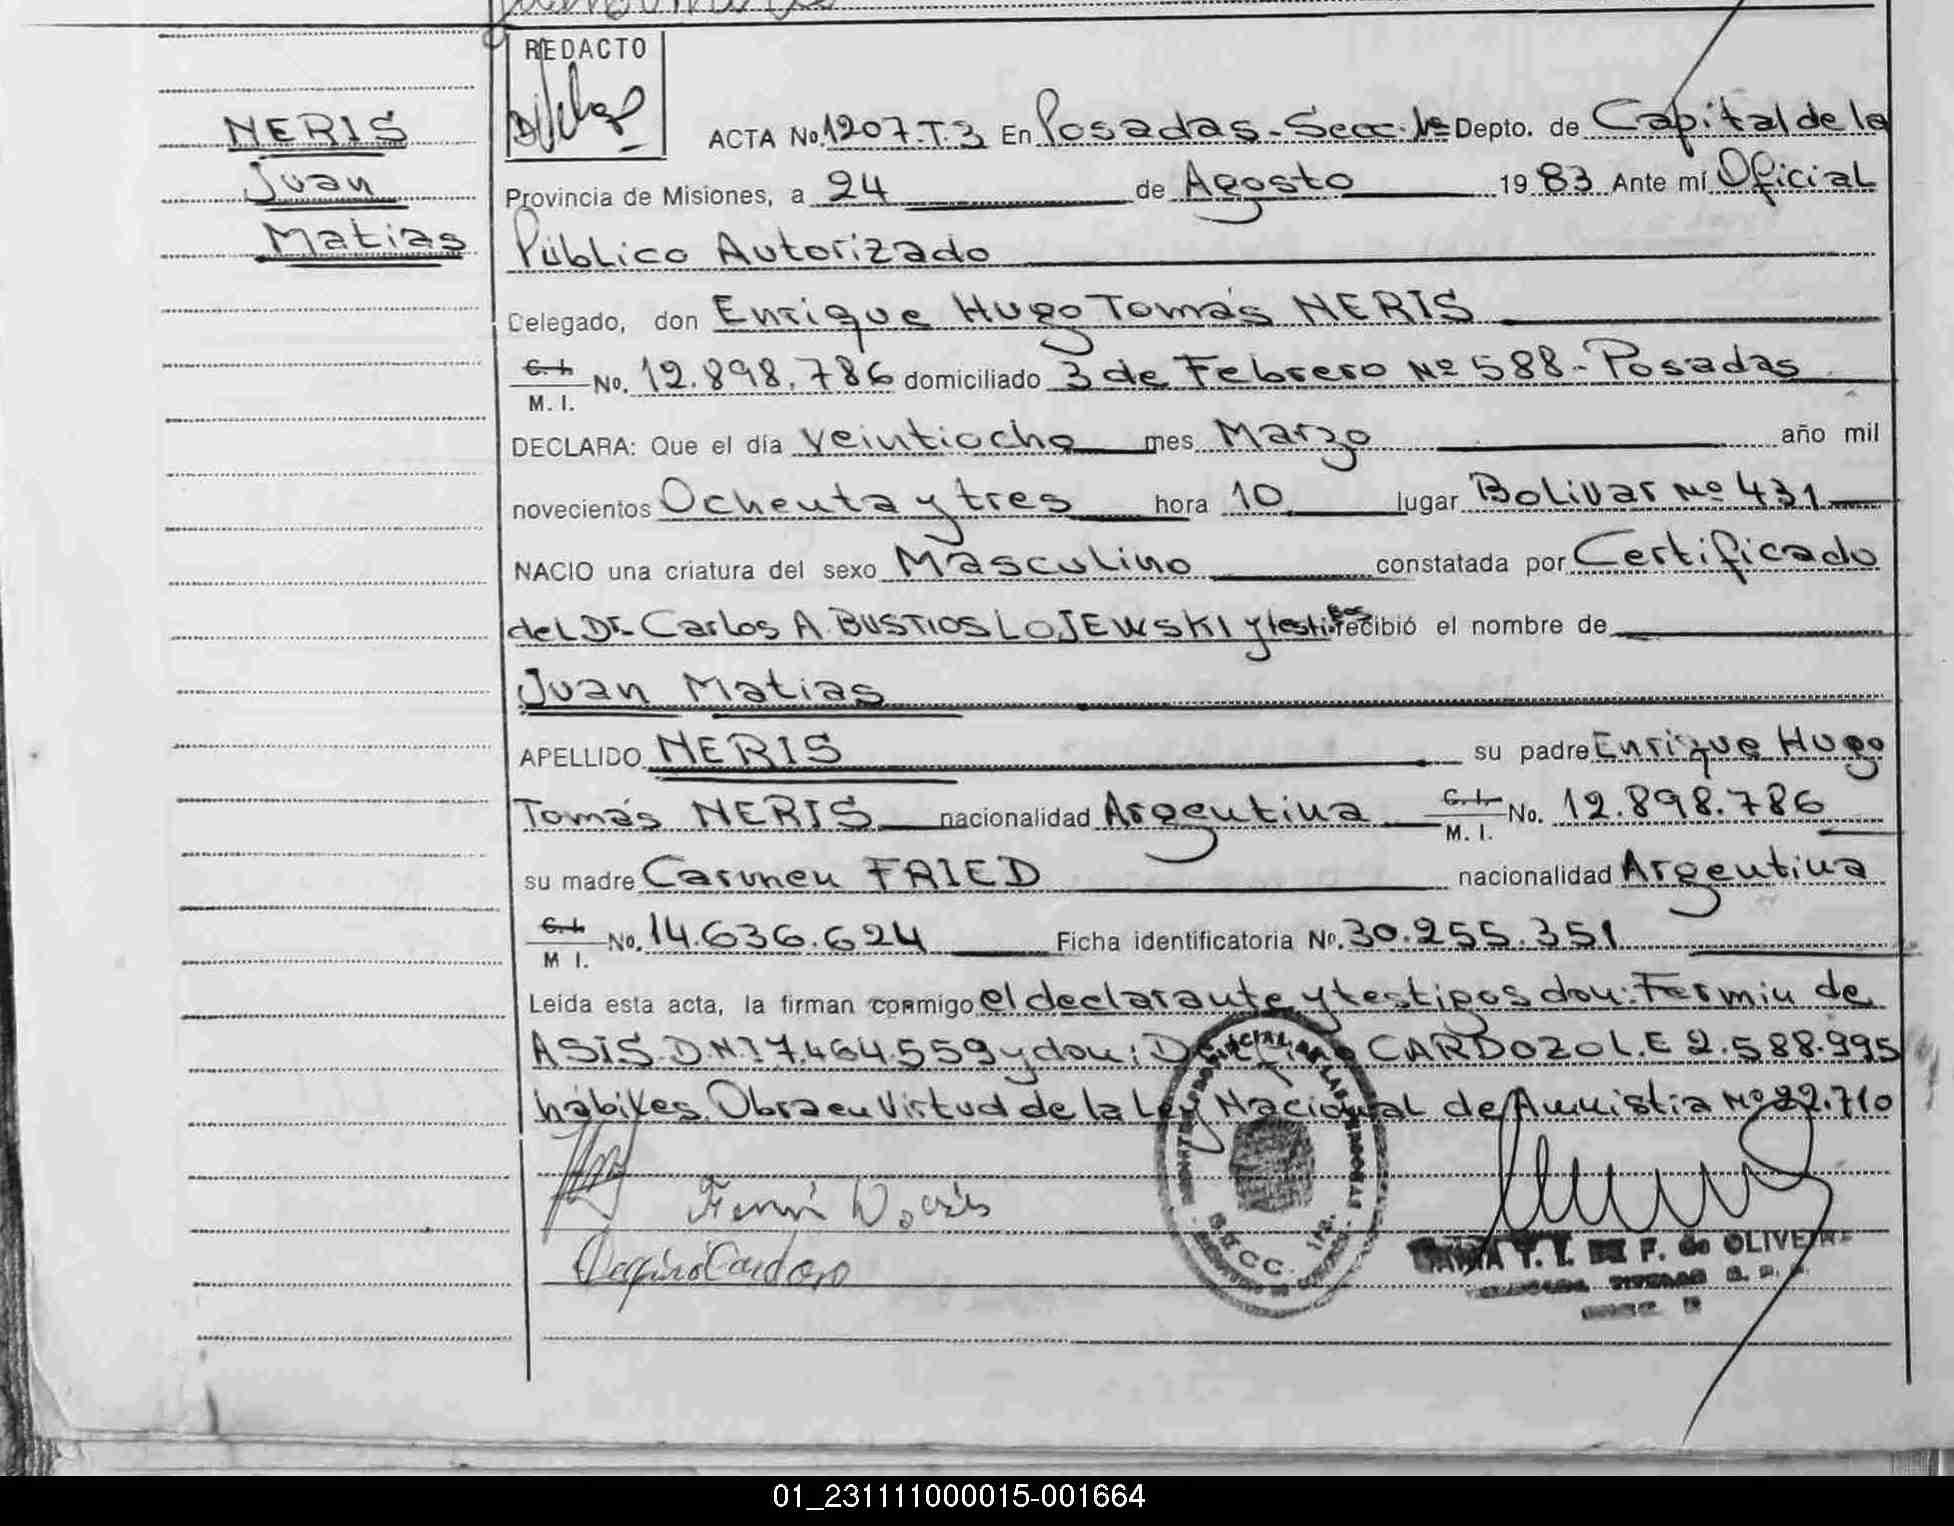 NERIS
Juan
Matias
REDACTO
ACTA No. 1207.T.3 En Posadas - Secc. 1ª Depto. de Capital de la
Provincia de Misiones, a 24 de Agosto 1983 Ante mí Oficial
Público Autorizado
Delegado, don Enrique Hugo Tomás NERIS
C.I. M. I. No. 12.898.786 domiciliado 3 de Febrero Nº 588 - Posadas
DECLARA: Que el día veintiocho mes Marzo año mil
novecientos Ochenta y tres hora 10 lugar Bolivar Nº 431
NACIO una criatura del sexo Masculino constatada por Certificado
del Dr. Carlos A. BUSTIOS LOJEWSKI y testigos recibió el nombre de
Juan Matias
APELLIDO NERIS su padre Enrique Hugo
Tomás NERIS nacionalidad Argentina C.I. M. I. No. 12.898.786
su madre Carmen FRIED nacionalidad Argentina
C.I. M I. No. 14.636.624 Ficha identificatoria No. 30.255.351
Leída esta acta, la firman conmigo el declarante y testigos don: Fermin de
ASIS. D.N.I 7.464.559 y don: CARDOZO L.E 2.588.995
hábiles. Obra en Virtud de la Ley Nacional de Amnistia Nº 22.710
Fermin D. asis
Cardozo
SECC. 1ra.
T. T. DE F. de OLIVEIRA
01_231111000015-001664